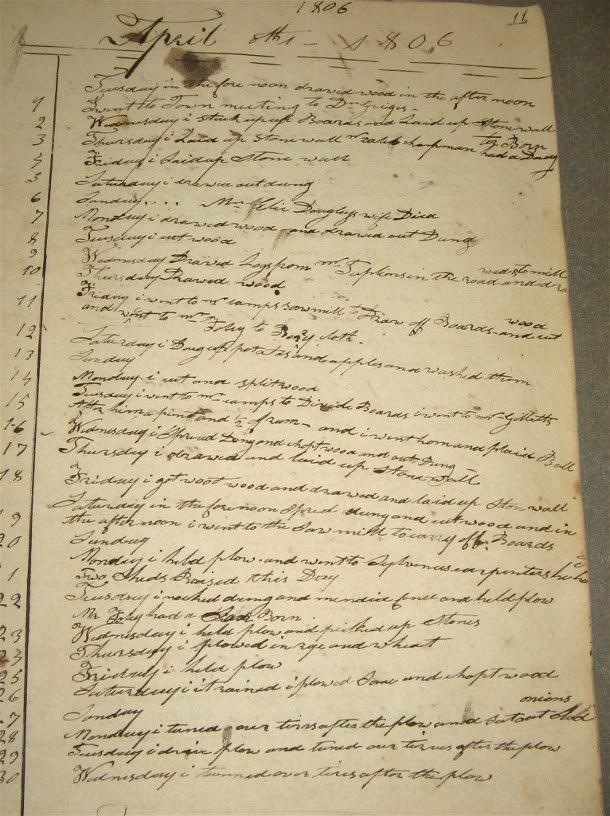 1806
11
April 8th 1806
Tuesday in the fore noon drawed wood in the after noon
1 I went to Town meeting to
2 Wednesday i stuck up up Boards and Laid up Stone wall
3 Thursday i Laid up Stone wall chapman had a Daug ter Born
4 Friday i Laid up Stone wall
5 Saturday i drawed out dung
6 Sunday . . . . Mr Douglass wife Died
7 Monday i drawed wood and drawed out Dung
8 Tuesday i cut wood
9 Wednesday Drawed Logs from mr Tipkins in the road and dra wed to mill
10 Thursday Drawed wood
11 Friday i went to mr camps Sawmill to Draw off Boards and cut wood
and went to mr Foley to cloth
12 Saturday i Doug up potatos and apples and washed them
13 Sunday
14 Monday i cut and split wood
15 Tuesday i went to mr camps to Divide Boards i went to mr Gillitts
after hum a pint and 1/2 of rom and i went hom and plaid Ball
16 Wednesday i Spread Dung and chopt wood and out Dung
17 Thursday i drawed and laid up Stone wall
18 Friday i got wood and drawed and laid up Ston wall
19 Saturday in the fore noon Spred dung and cut wood and in
the afternoon i went to the Saw mill to carry off Boards
20 Sunday
21 Monday i held plow and went to Sylvenus carpinters he had
Two Sheds Raased this Day
22 Tuesday i dung and mendid fence and held plow
Mr Foley had a Son Born
23 Wednesday i held plow and picked up Stones
24 Thursday i plowed in rye and wheat
25 Friday i held plow
26 Saturday i it rained i plowed Some and chopt wood
27 Sunday
28 Monday i turned our after the plow and Sot out onions
29 Tuesday i plow and turned our after the plow
30 Wednesday i turned over after the plow